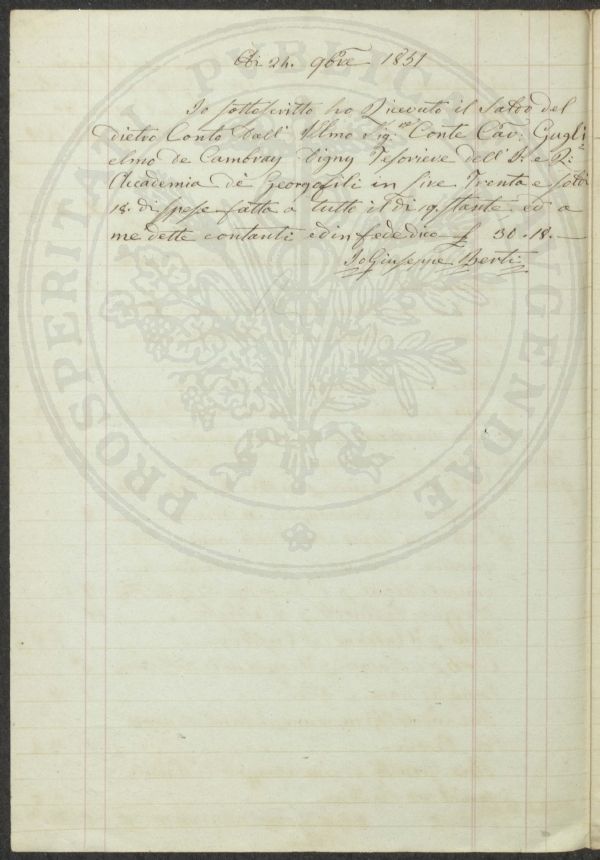 24. 9bre 1851
Io sottoscritto ho Ricevuto il Saldo del
dietro Conto dall' Illmo Sig: re Conte Cav: Gugli
elmo de Cambray Digny Tesoriere dell' I. e R:
Accademia de' Georgofili in Lire Trenta e soldi
18. di spese fatte a tutto il di 19. stante ed a
me dette contanti ed in fede dico £ 30.18.
Io Giuseppe Berti
PROSPERITATI PUBLICAE AUGENDAE